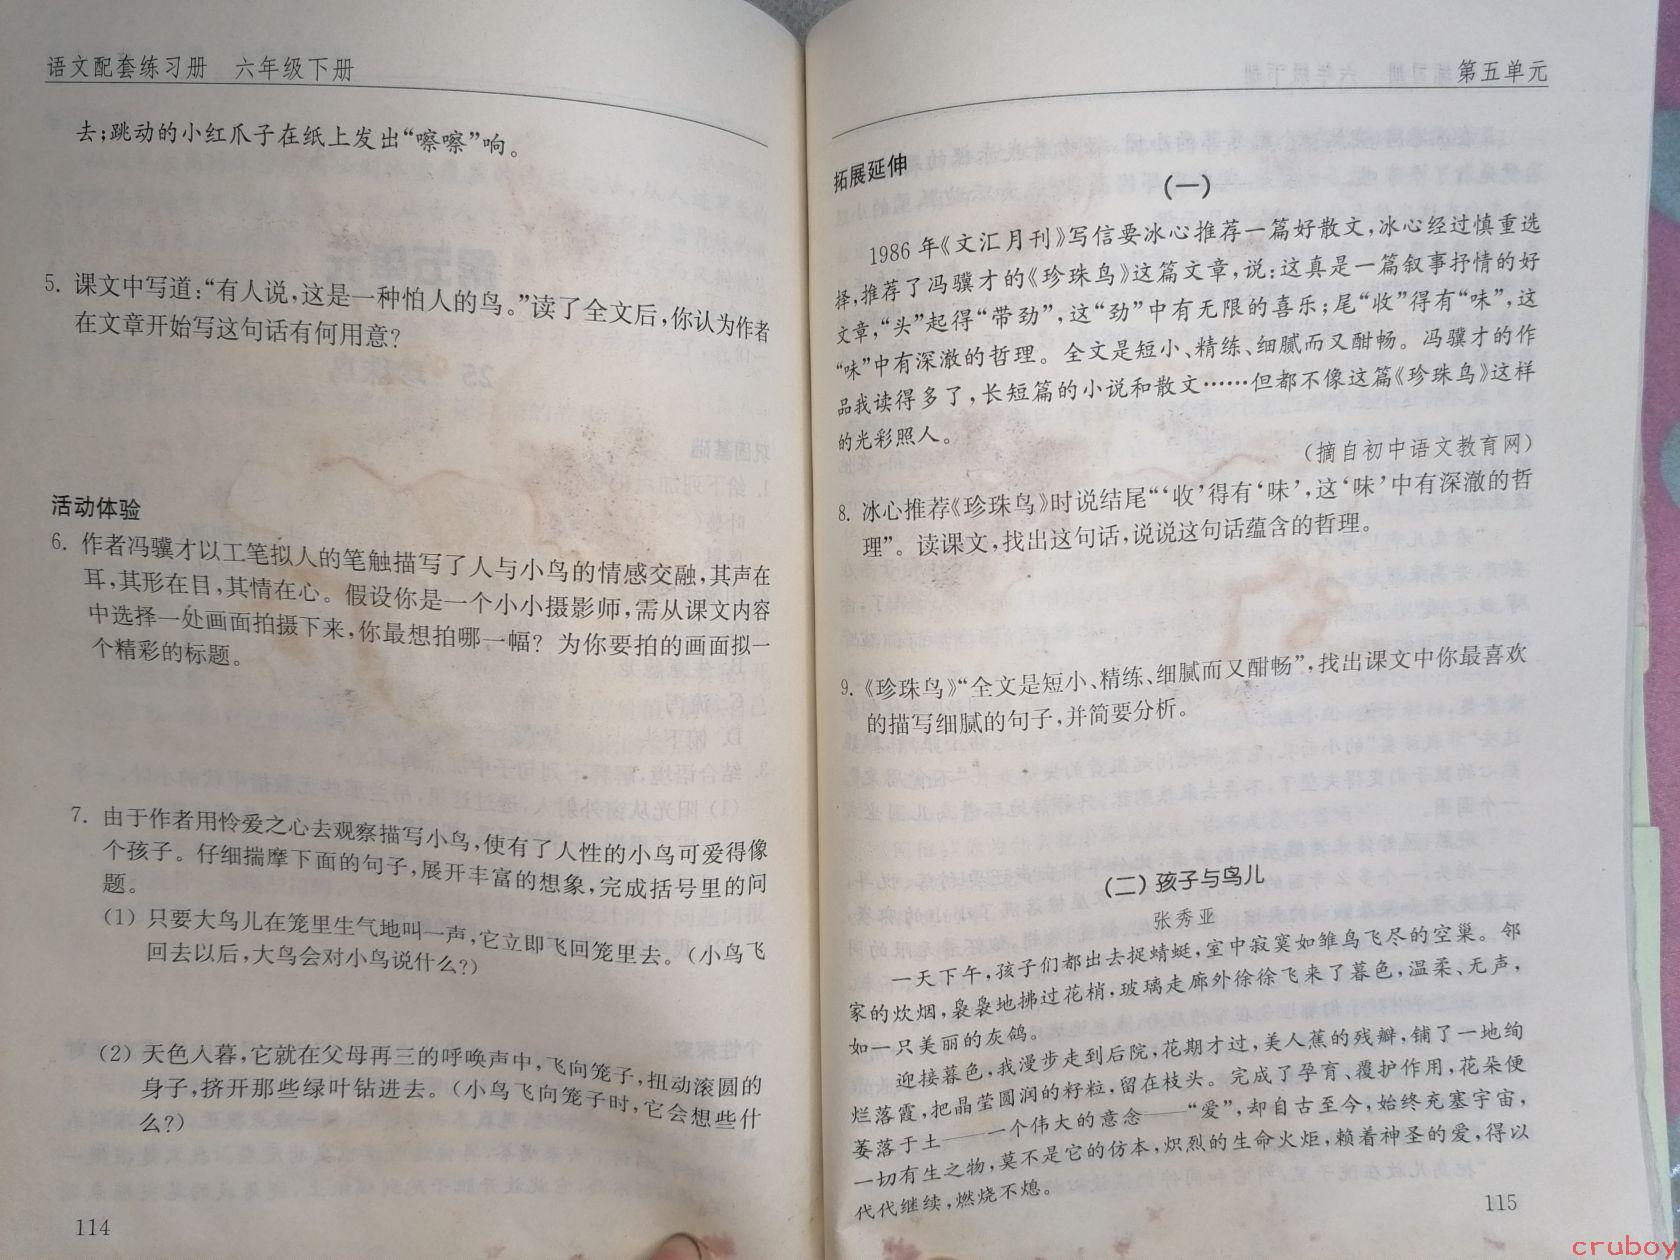 语文配套练习册　六年级下册
去;跳动的小红爪子在纸上发出“嚓嚓”响。
5. 课文中写道:“有人说,这是一种怕人的鸟。”读了全文后,你认为作者
在文章开始写这句话有何用意?
活动体验
6. 作者冯骥才以工笔拟人的笔触描写了人与小鸟的情感交融,其声在
耳,其形在目,其情在心。假设你是一个小小摄影师,需从课文内容
中选择一处画面拍摄下来,你最想拍哪一幅? 为你要拍的画面拟一
个精彩的标题。
7. 由于作者用怜爱之心去观察描写小鸟,使有了人性的小鸟可爱得像
个孩子。仔细揣摩下面的句子,展开丰富的想象,完成括号里的问
题。
(1) 只要大鸟儿在笼里生气地叫一声,它立即飞回笼里去。(小鸟飞
回去以后,大鸟会对小鸟说什么?)
(2) 天色入暮,它就在父母再三的呼唤声中,飞向笼子,扭动滚圆的
身子,挤开那些绿叶钻进去。(小鸟飞向笼子时,它会想些什
么?)
114
第五单元
拓展延伸
(一)
1986 年《文汇月刊》写信要冰心推荐一篇好散文,冰心经过慎重选
择,推荐了冯骥才的《珍珠鸟》这篇文章,说:这真是一篇叙事抒情的好
文章,“头”起得“带劲”,这“劲”中有无限的喜乐;尾“收”得有“味”,这
“味”中有深澈的哲理。全文是短小、精练、细腻而又酣畅。冯骥才的作
品我读得多了,长短篇的小说和散文……但都不像这篇《珍珠鸟》这样
的光彩照人。
(摘自初中语文教育网)
8. 冰心推荐《珍珠鸟》时说结尾“‘收’得有‘味’,这‘味’中有深澈的哲
理”。读课文,找出这句话,说说这句话蕴含的哲理。
9. 《珍珠鸟》“全文是短小、精练、细腻而又酣畅”,找出课文中你最喜欢
的描写细腻的句子,并简要分析。
(二) 孩子与鸟儿
张秀亚
一天下午,孩子们都出去捉蜻蜓,室中寂寞如雏鸟飞尽的空巢。邻
家的炊烟,袅袅地拂过花梢,玻璃走廊外徐徐飞来了暮色,温柔、无声,
如一只美丽的灰鸽。
迎接暮色,我漫步走到后院,花期才过,美人蕉的残瓣,铺了一地绚
烂落霞,把晶莹圆润的籽粒,留在枝头。完成了孕育、覆护作用,花朵便
萎落于土——一个伟大的意念——“爱”,却自古至今,始终充塞宇宙,
一切有生之物,莫不是它的仿本,炽烈的生命火炬,赖着神圣的爱,得以
代代继续,燃烧不熄。
115
cruboy